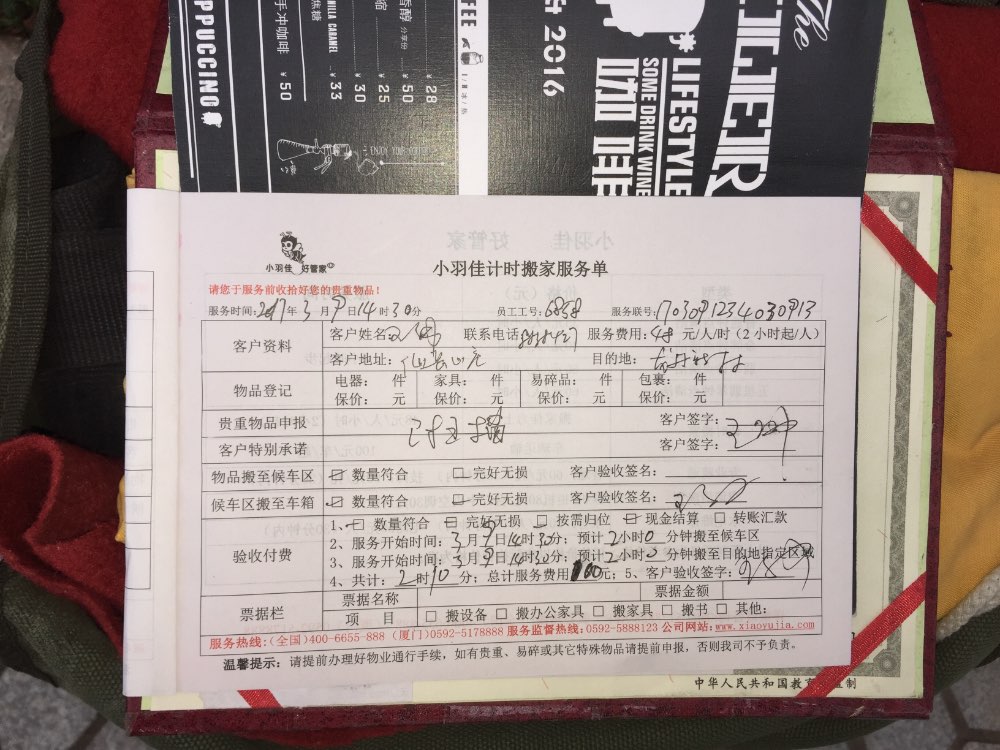 PPUCCINO
手冲咖啡 ¥50
焦糖
NILLA CARAMEL ¥33
¥30
缩 ¥25
香醇 分享份 ¥50
¥28
FEE
2016
咖啡
SOME DRINK WINE
LIFESTYLE
The
小羽佳 好管家
小羽佳计时搬家服务单
请您于服务前收拾好您的贵重物品！
服务时间：2017年3月9日14时30分 员工工号：6858 服务联号：
客户资料 客户姓名 联系电话 服务费用：48元/人/时（2小时起/人）
客户地址： 目的地：
物品登记 电器： 件 家具： 件 易碎品： 件 包裹： 件
保价： 元 保价： 元 保价： 元 保价： 元
贵重物品申报 客户签字：
客户特别承诺 客户签字：
物品搬至候车区 ☑ 数量符合 □ 完好无损 客户验收签名：
候车区搬至车箱 ☑ 数量符合 ☑ 完好无损 客户验收签名：
验收付费 1、☑ 数量符合 ☑ 完好无损 □ 按需归位 ☑ 现金结算 □ 转账汇款
2、服务开始时间：3月9日14时30分：预计2小时0分钟搬至候车区
3、服务开始时间：3月9日14时30分：预计2小时0分钟搬至目的地指定区域
4、共计：2时10分；总计服务费用100元；5、客户验收签字：
票据栏 票据名称 票据金额
项 目 □ 搬设备 □ 搬办公家具 □ 搬家具 □ 搬书 □ 其他：
服务热线：(全国)400-6655-888 (厦门)0592-5178888 服务监督热线：0592-5888123 公司网站：www.xiaoyujia.com
温馨提示：请提前办理好物业通行手续，如有贵重、易碎或其它特殊物品请提前申报，否则我司不予负责。
中华人民共和国教育 制